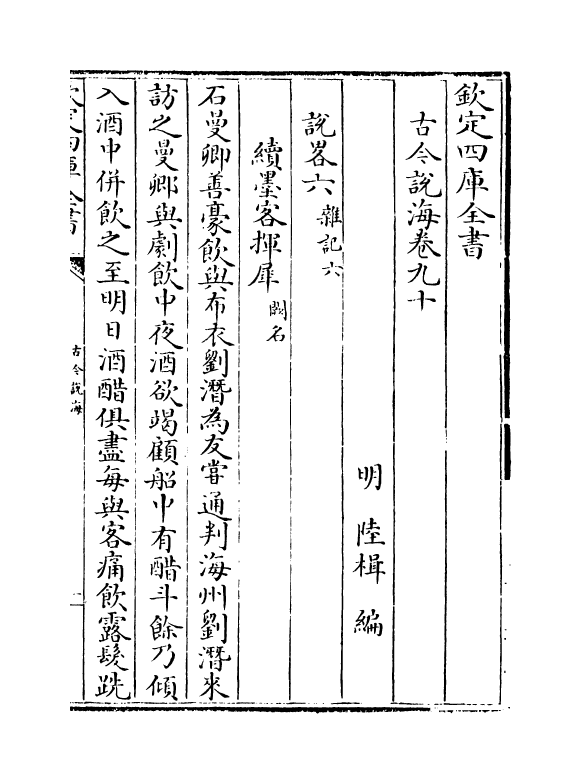 欽定四庫全書
古今說海卷九十
明 陸楫 編
說畧六 雜記六
續墨客揮犀 闕名
石曼卿善豪飲與布衣劉潛為友甞通判海州劉潛來
訪之曼卿與劇飲中夜酒欲竭顧船中有醋斗餘乃傾
入酒中併飲之至明日酒醋俱盡每與客痛飲露髮跣
欽定四庫全書
古今說海
一